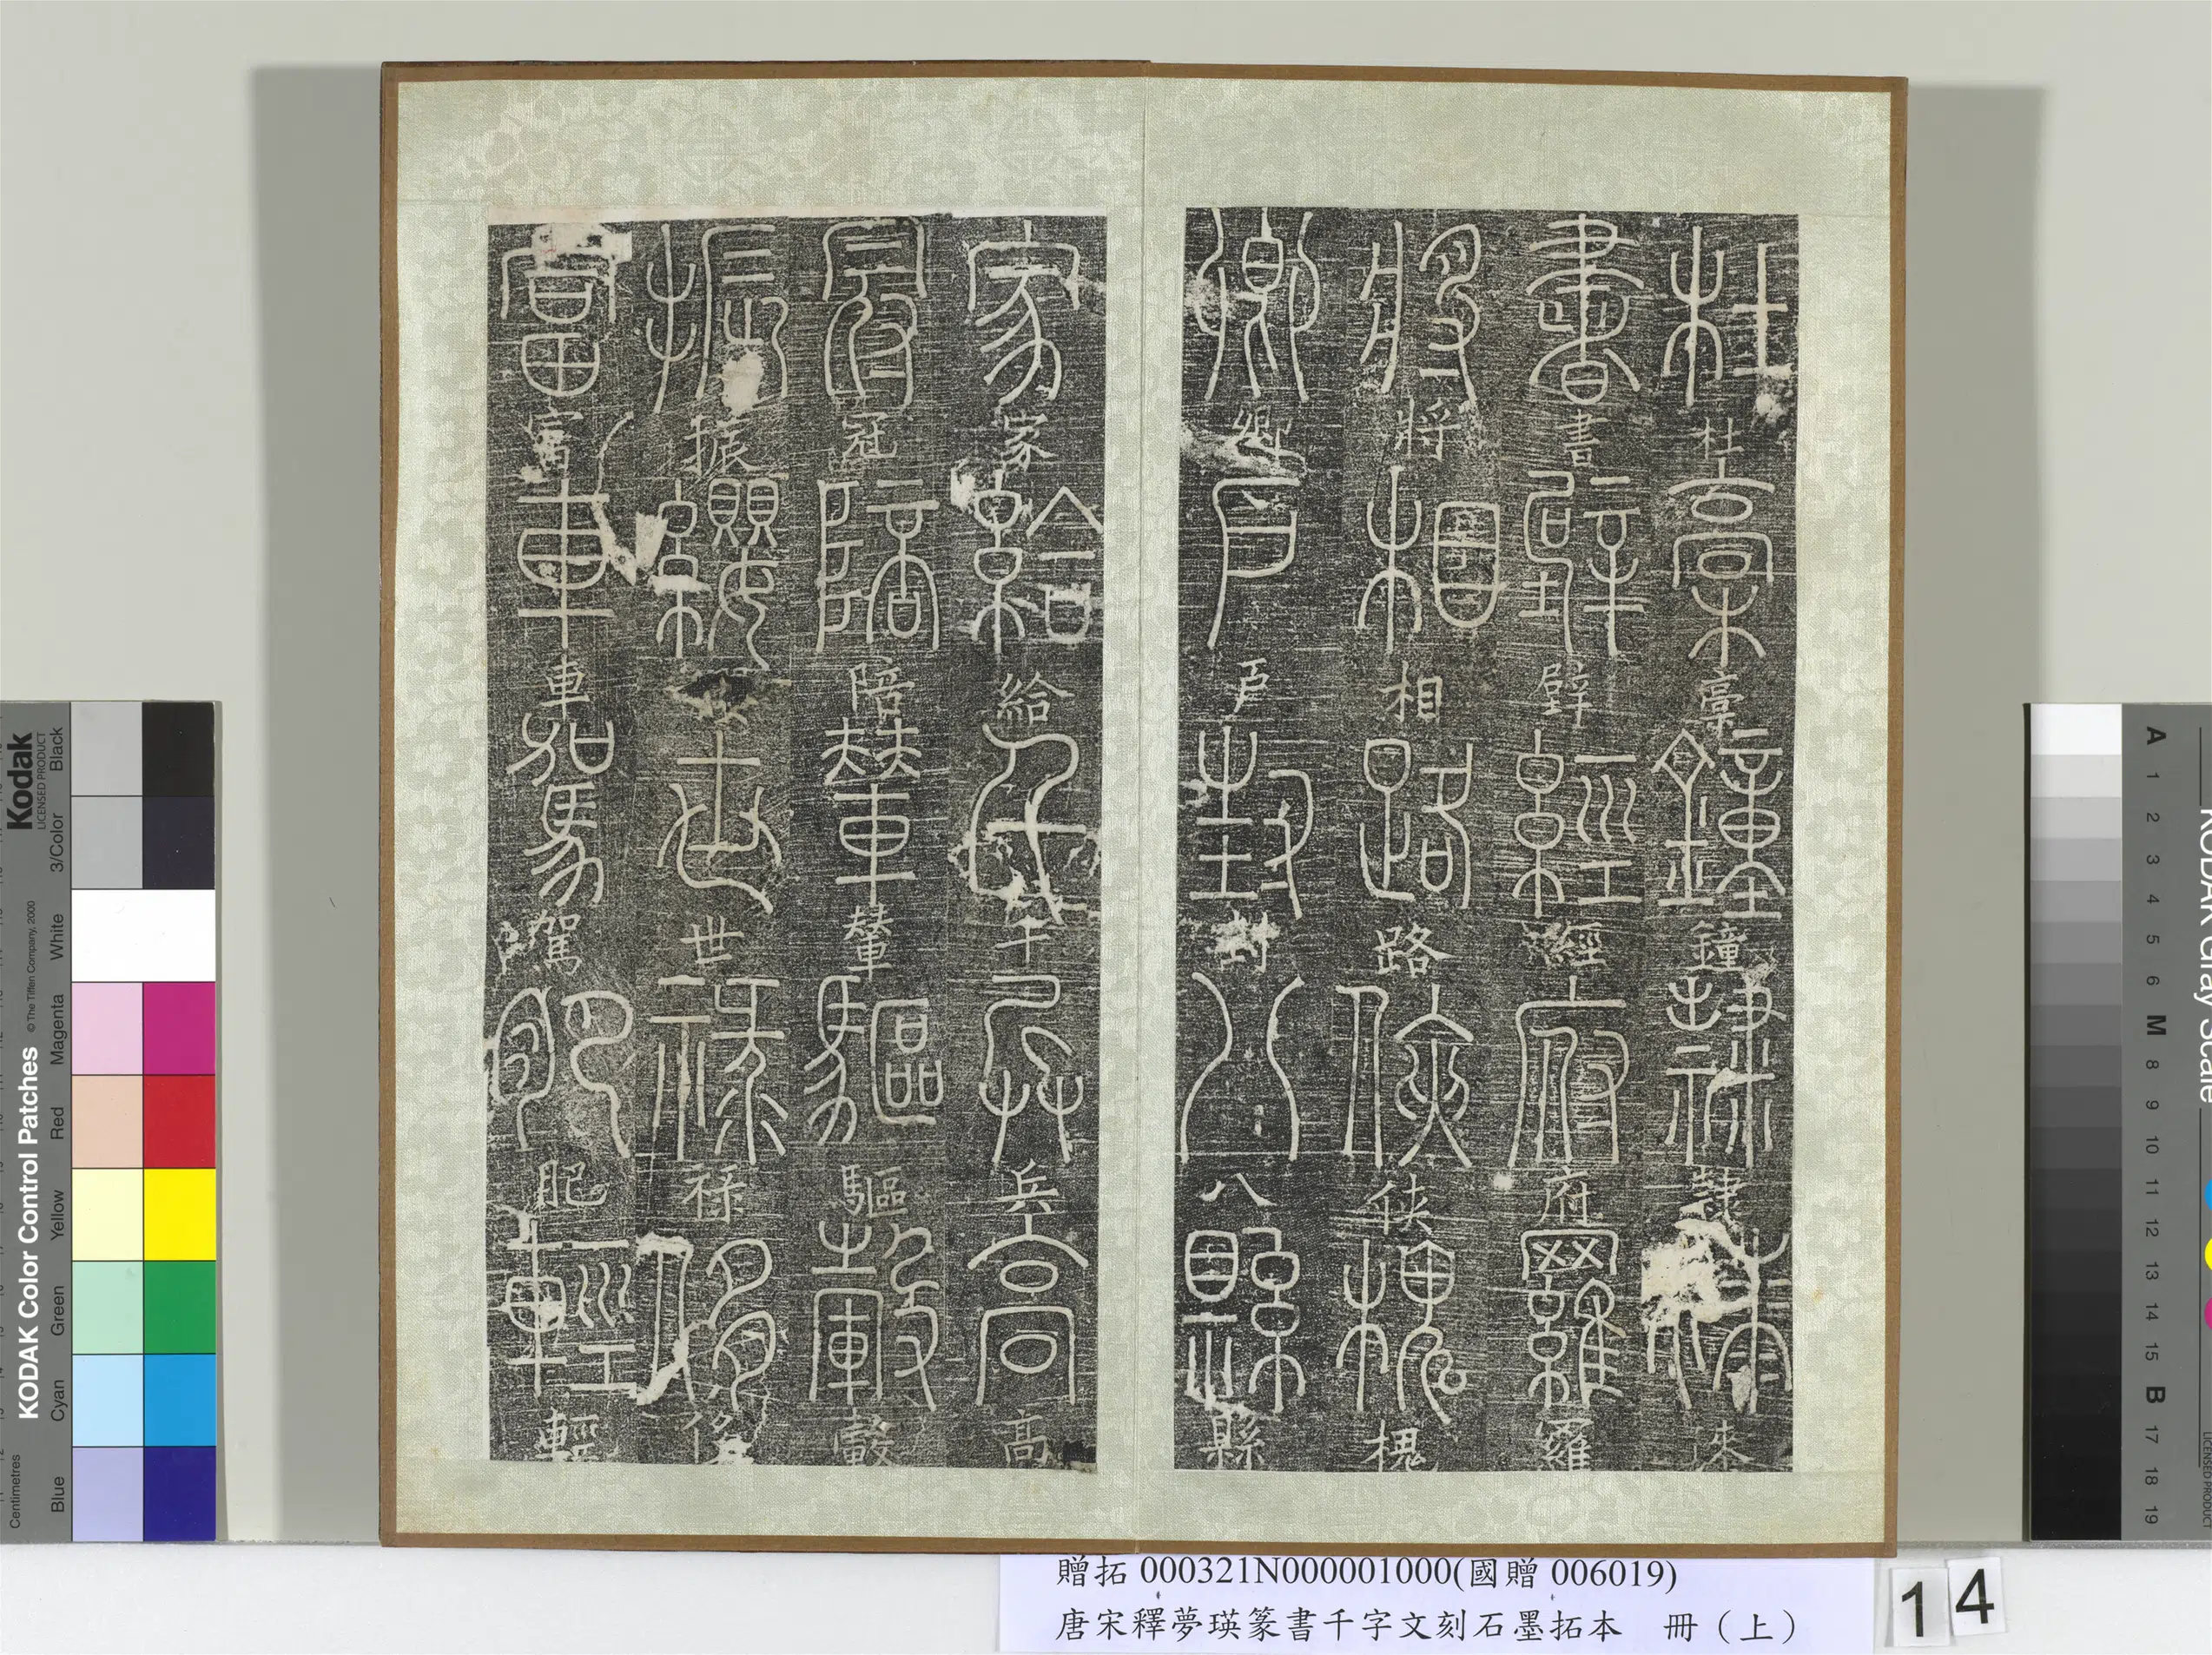 杜杜稾稾鐘鐘隸隸漆漆
書書壁壁經經府府羅羅
將將相相路路俠俠槐槐
卿卿戶戶封封八八縣縣
家家給給千千兵兵高高
冠冠陪陪輦輦驅驅轂轂
振振纓世世祿祿侈侈
富富車車駕駕肥肥輕輕
贈拓 000321N000001000(國贈 006019)
唐宋釋夢瑛篆書千字文刻石墨拓本 冊（上）
14
Kodak
LICENSED PRODUCT
KODAK Color Control Patches
© The Tiffen Company, 2000
Centimetres
Blue Cyan Green Yellow Red Magenta White 3/Color Black
KODAK Gray Scale
A 1 2 3 4 5 6 M 8 9 10 11 12 13 14 15 B 17 18 19
LICENSED PRODUCT